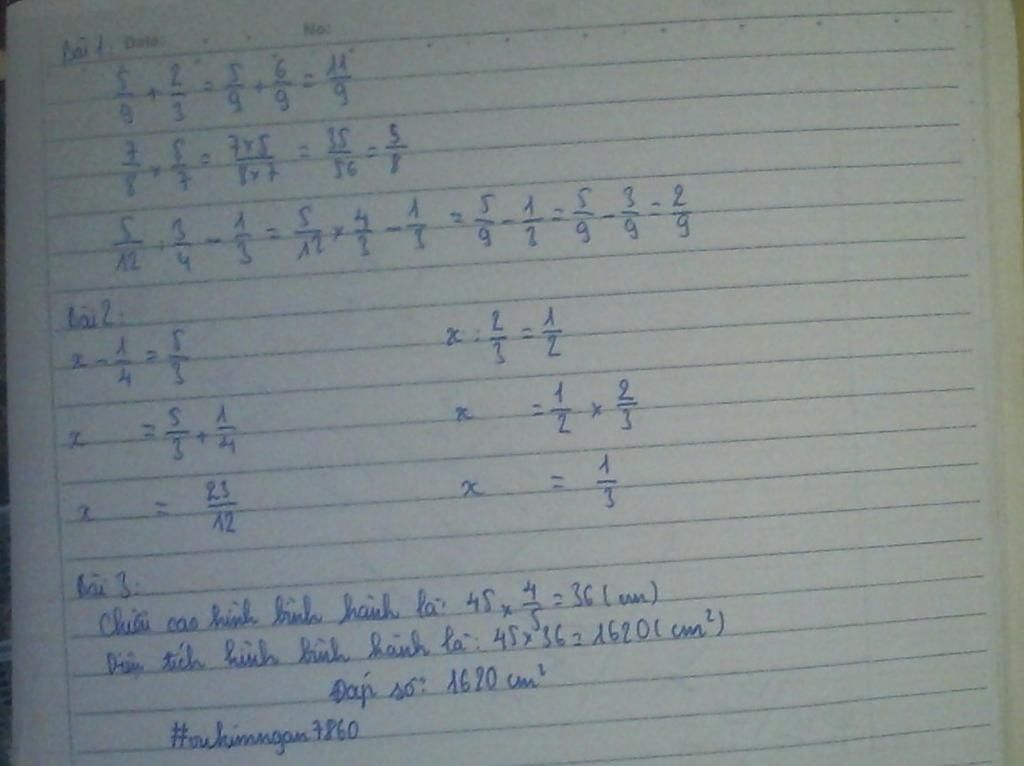 Bài 1: Date: No:
5/9 + 2/3 = 5/9 + 6/9 = 11/9
7/8 × 5/7 = 7×5/8×7 = 35/56 = 5/8
5/12 : 3/4 - 1/3 = 5/12 × 4/3 - 1/3 = 5/9 - 1/3 = 5/9 - 3/9 = 2/9
Bài 2:
x - 1/4 = 5/3 x : 2/3 = 1/2
x = 5/3 + 1/4 x = 1/2 × 2/3
x = 23/12 x = 1/3
Bài 3:
Chiều cao hình bình hành là: 45 × 4/5 = 36 (cm)
Diện tích hình bình hành là: 45 × 36 = 1620 (cm²)
Đáp số: 1620 cm²